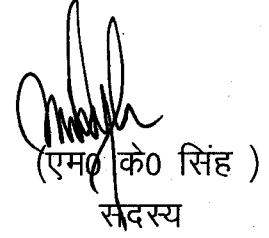 (एम0 के0 सिंह )
सदस्य